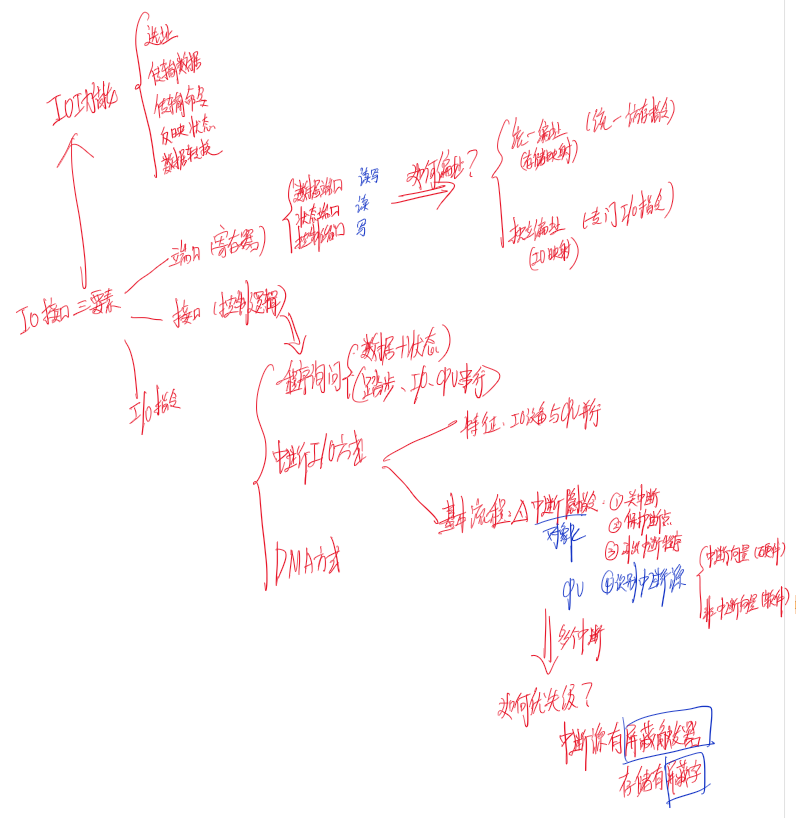 IO功能
选址
传输数据
传输命令
反映状态
数据转换
IO接口三要素
端口(寄存器)
数据端口 读写
状态端口 读
控制端口 写
如何编址?
统一编址 (统一访存指令)
(存储映射)
独立编址 (专门I/O指令)
(IO映射)
接口(控制逻辑)
I/O指令
程序询问
数据+状态)
(踏步、I/O、CPU串行)
中断I/O方式
特征: IO设备与CPU并行
基本流程: 中断隐指令: ①关中断
对象
②保护断点
③引出中断程序
CPU ④识别中断源
中断向量(硬件)
非中断向量(软件)
DMA方式
多个中断
如何优先级?
中断源有屏蔽触发器
存储有屏蔽字